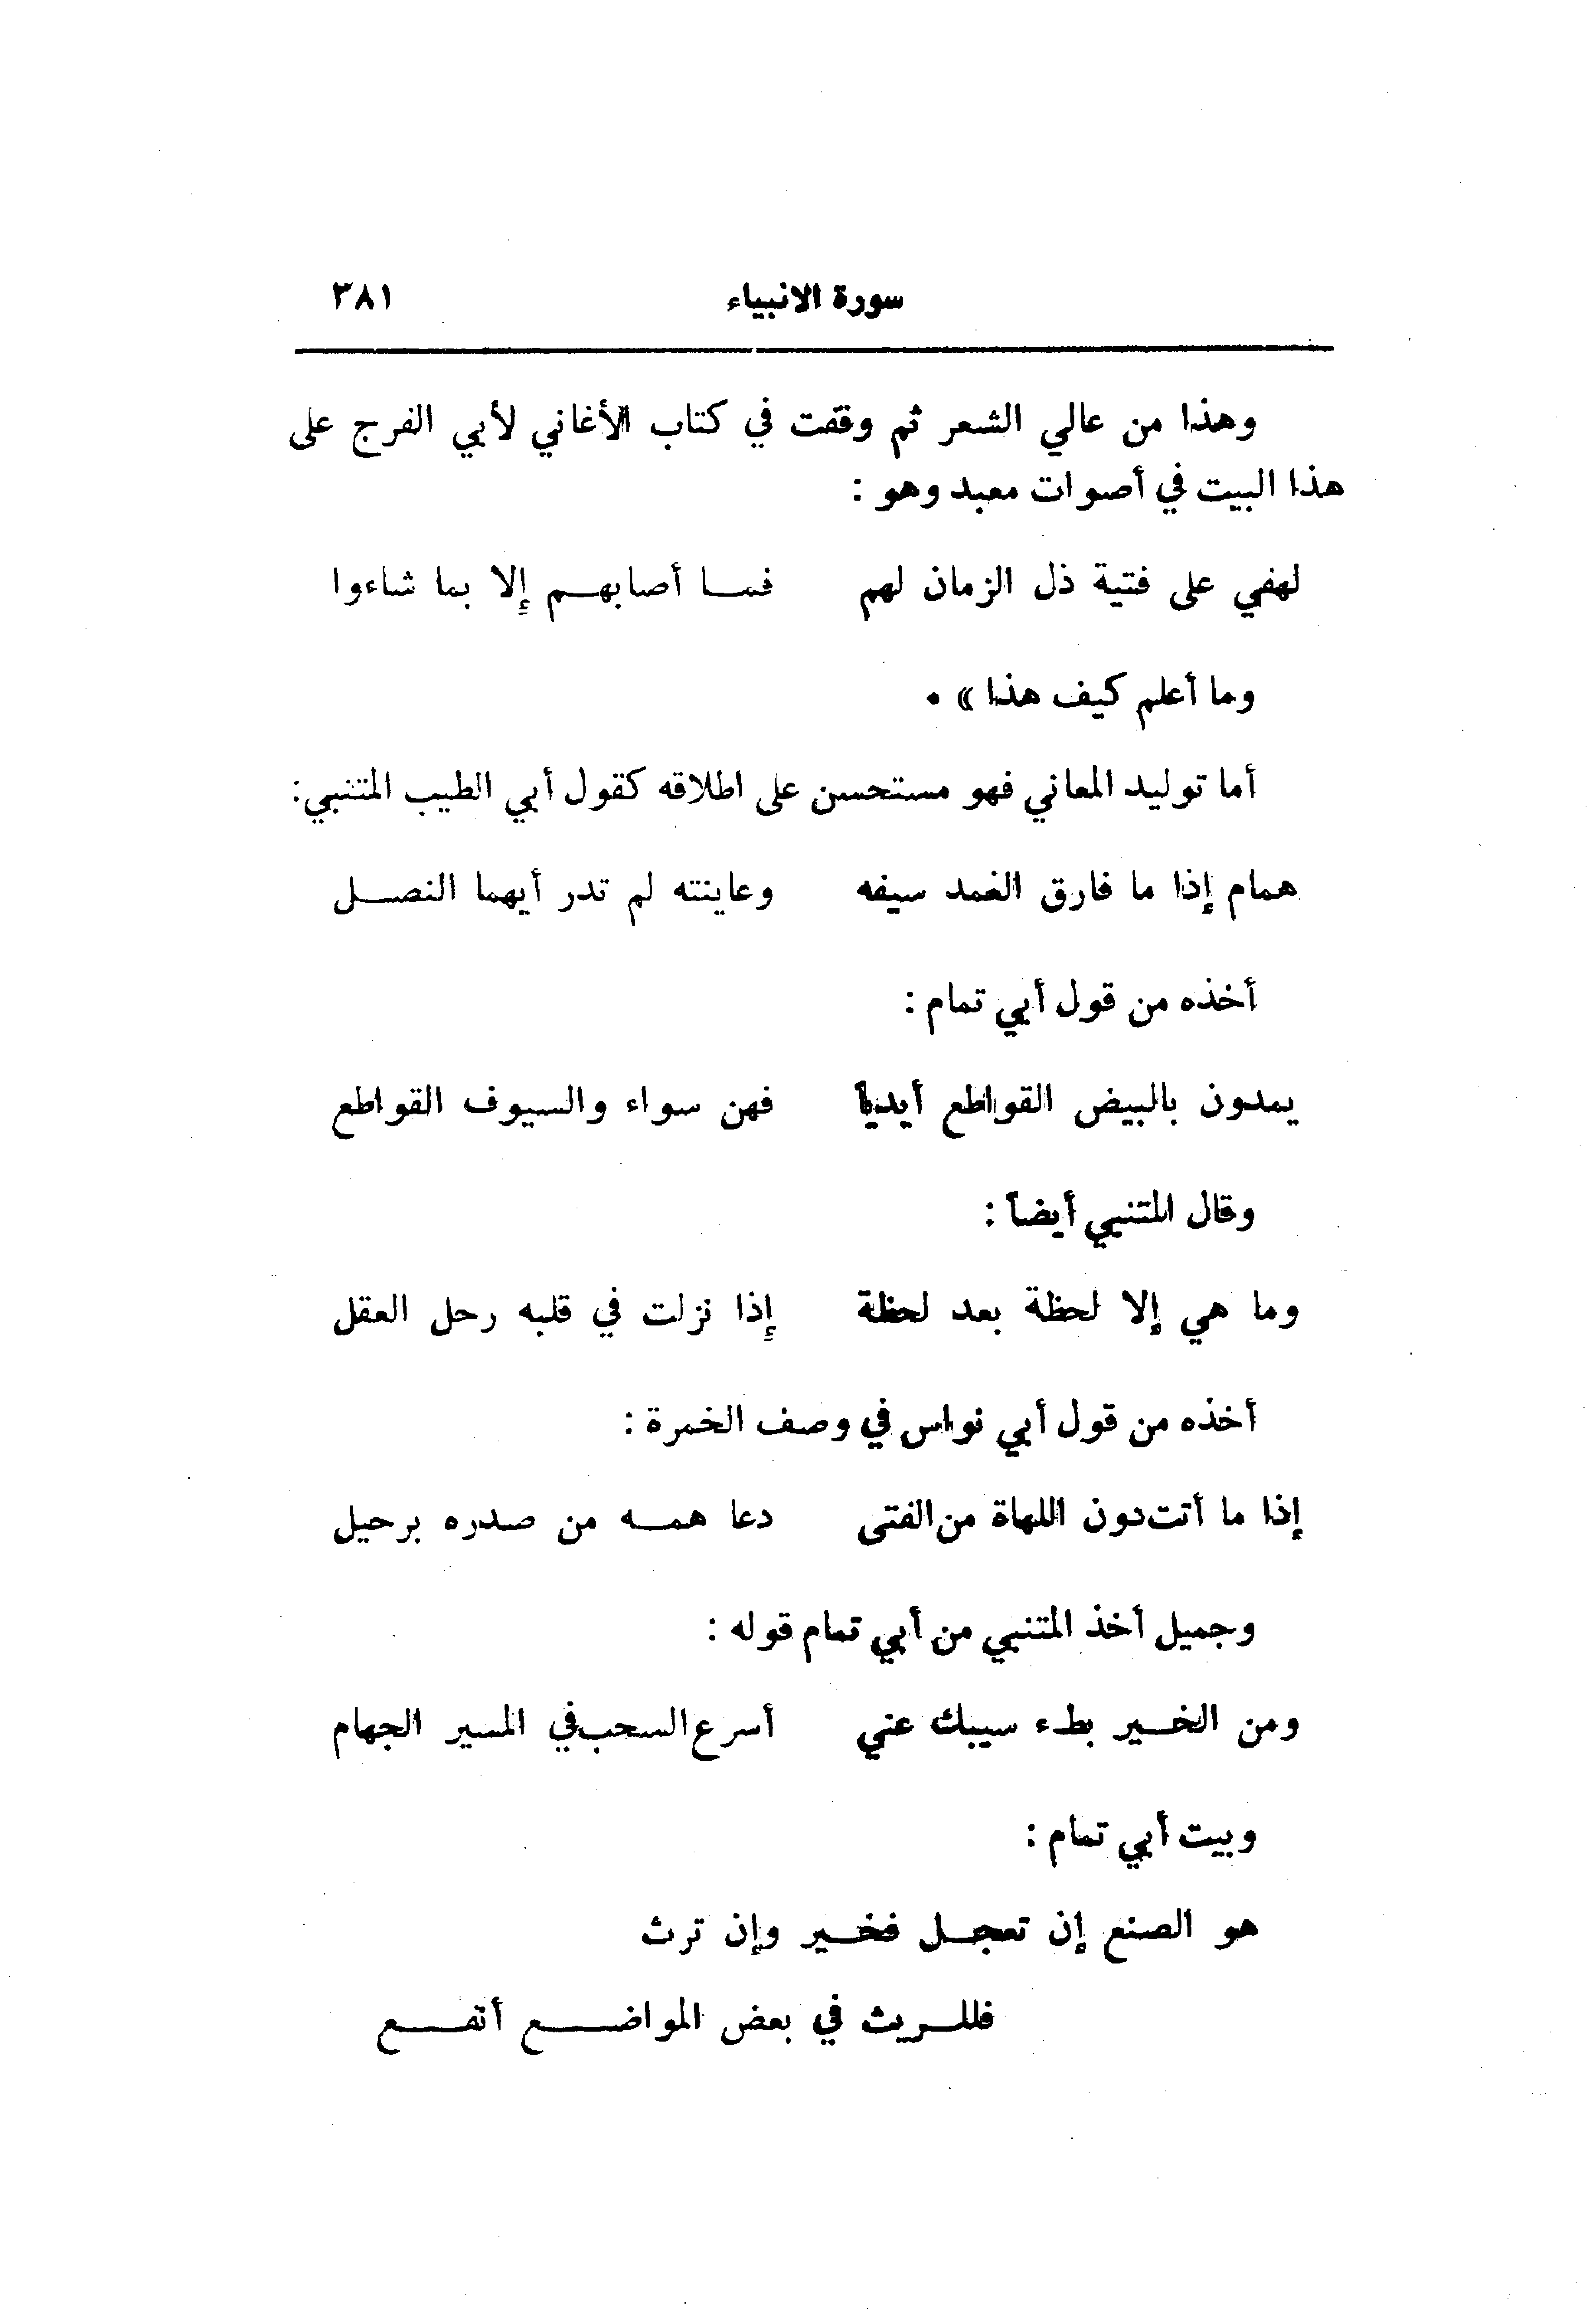 سورة الانبياء ٣٨١
وهذا من عالي الشعر ثم وقفت في كتاب الأغاني لأبي الفرج على
هذا البيت في أصوات معبد وهو :
لهفي على فتية ذل الزمان لهم فمــا أصابهــم إلا بما شاءوا
وما أعلم كيف هذا » .
أما توليد المعاني فهو مستحسن على اطلاقه كقول أبي الطيب المتنبي:
همام إذا ما فارق الغمد سيفه وعاينته لم تدر أيهما النصــل
أخذه من قول أبي تمام :
يمدون بالبيض القواطع أيدياً فهن سواء والسيوف القواطع
وقال المتنبي أيضاً :
وما هي إلا لحظة بعد لحظة إذا نزلت في قلبه رحل العقل
أخذه من قول أبي نواس في وصف الخمرة :
إذا ما أتت دون اللهاة من الفتى دعا همــه من صدره برحيل
وجميل أخذ المتنبي من أبي تمام قوله :
ومن الخــير بطء سيبك عني أسرع السحب في المسير الجهام
وبيت أبي تمام :
هو الصنع إن تعجــل فخــير وإن ترث
فللــريث في بعض المواضــع أنفــع